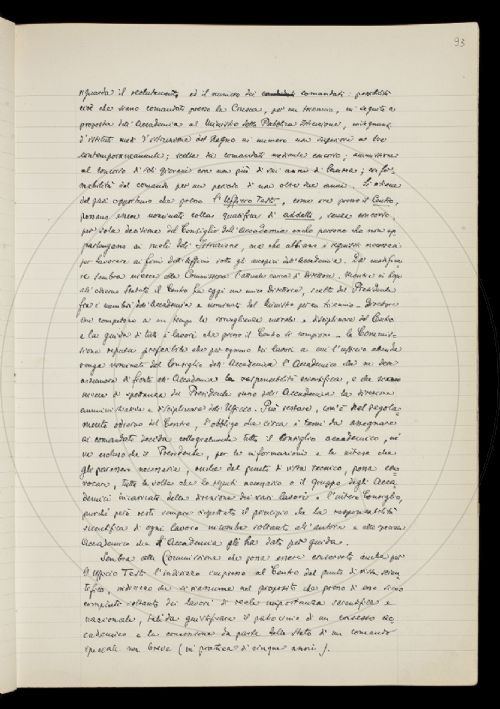 93
riguarda il reclutamento ed il numero dei comandati: possibilità
cioè che siano comandati presso la Crusca, per un triennio, in seguito a
proposta dell'Accademia al Ministro della Pubblica Istruzione, insegnanti
d'istituti medi d'istruzione del Regno in numero non superiore a tre
contemporaneamente; scelta dei comandati mediante concorso; ammissione
al concorso di soli giovani con non più di sei anni di laurea;
del comando per un periodo di non oltre due anni. Si ritiene
del pari opportuno che presso l'Ufficio Testi, come ora presso il Centro,
possano essere nominate colla qualifica di addetti, senza concorso,
per sola decisione del Consiglio dell'Accademia anche persone che non ap-
partengano ai ruoli dell'Istruzione, ma che abbiano i requisiti necessari
per lavorare ai fini dell'Ufficio sotto gli auspici dell'Accademia. Da modificar-
si sembra invece alla Commissione l'attuale carica di Direttore. Mentre in base
allo odierno Statuto il Centro ha oggi un unico Direttore, scelto dal Presidente
fra i membri dell'Accademia e nominato dal Ministro per un triennio - Direttore
cui competono a un tempo la sorveglianza morale e disciplinare del Centro
e la guida di tutti i lavori che presso il Centro si compiono - la Commis-
sione reputa preferibile che per ognuno dei lavori a cui l'ufficio attenda
venga nominato dal Consiglio dell'Accademia l'Accademico che ne deve
assumere di fronte all'Accademia la responsabilità scientifica, e che
invece di spettanza del Presidente stesso dell'Accademia la direzione
amministrativa e disciplinare dell'Ufficio. Può restare, com'è nel regola-
mento odierno del Centro, l'obbligo che circa i temi da assegnare
ai comandati decida collegialmente tutto il Consiglio accademico, nè
va escluso che il Presidente, per le informazioni e le intese che
gli paressero necessarie, anche dal punto di vista tecnico, possa con-
vocare, tutte le volte che lo reputi necessario o il gruppo degli Acca-
demici incaricati della direzione dei vari lavori o l'intero Consiglio,
purchè però resti sempre rispettato il principio che la responsabilità
scientifica di ogni lavoro incombe soltanto all'autore e alla persona
Accademico che l'Accademia gli ha dato per guida.
Sembra alla Commissione che possa essere conservato anche per
l'Ufficio Testi l'indirizzo impresso al Centro dal punto di vista scien-
tifico, indirizzo che si riassume nel proposito che presso di esso siano
compiuti soltanto dei lavori di reale importanza scientifica e
nazionale, tali da giustificare il patrocinio di un consesso ac-
cademico e la concessione da parte dello Stato di un comando
speciale non breve (in pratica di cinque anni).